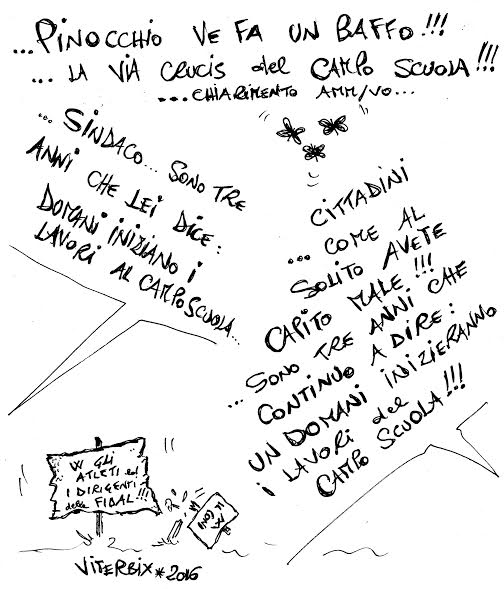 ...PINOCCHIO VE FA UN BAFFO!!!
... LA VIA CRUCIS del CAMPO SCUOLA!!!
...CHIARIMENTO AMM/VO...
... SINDACO... SONO TRE
ANNI CHE LEI DICE:
DOMANI INIZIANO I
LAVORI AL CAMPO SCUOLA...
CITTADINI
... COME AL
SOLITO AVETE
CAPITO MALE!!!
... SONO TRE ANNI CHE
CONTINUO A DIRE:
UN DOMANI INIZIERANNO
i LAVORI del
CAMPO SCUOLA!!!
W GLI
ATLETI ed
I DIRIGENTI
della FIDAL!!!
W
IL CONI
VITERBIX*2016